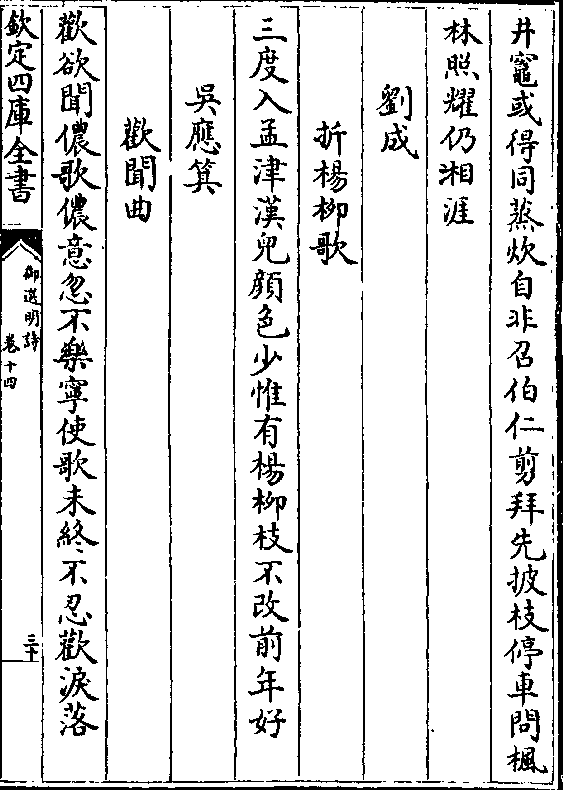 井竈或得同蒸炊自非召伯仁剪拜先披枝停車問楓
林照耀仍湘涯
劉成
折楊柳歌
三度入孟津漢兒顔色少惟有楊柳枝不改前年好
吳應箕
歡聞曲
歡欲聞儂歌儂意忽不樂寧使歌未終不忍歡淚落
欽定四庫全書
御選明詩
卷十四
三十